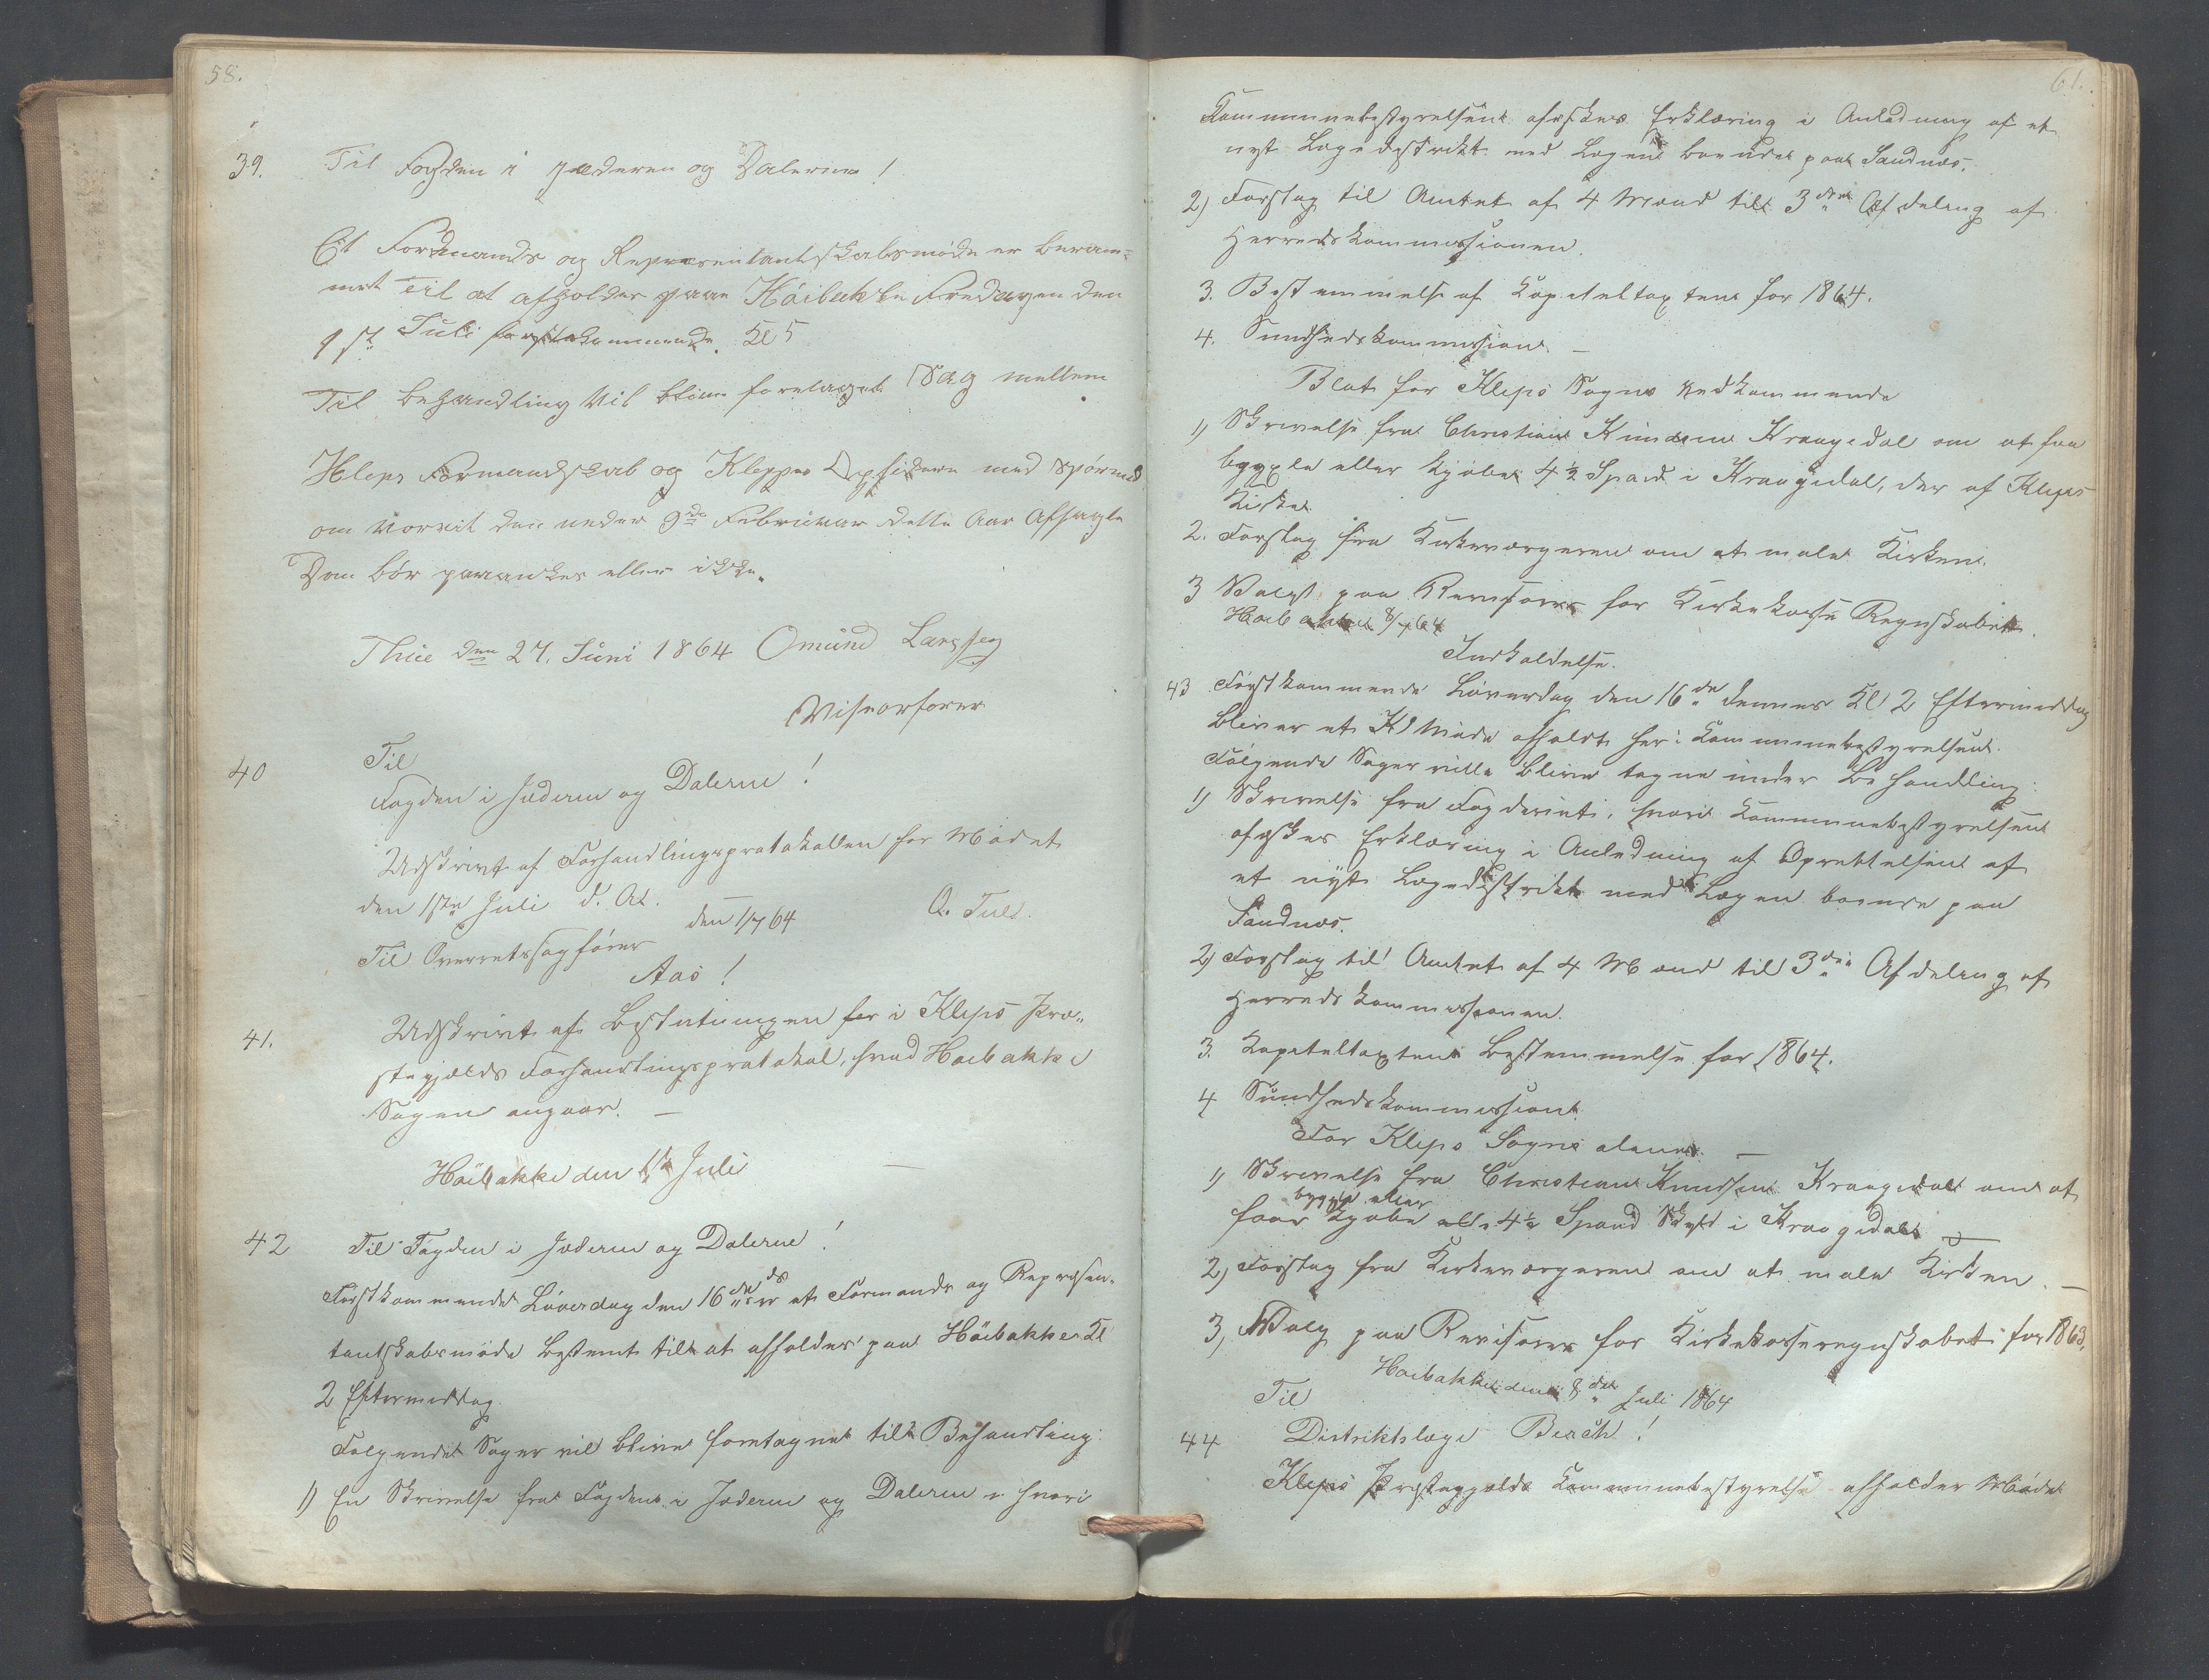 58.
39. Til Fogden i Jæderen og Dalerne!
Et Formands og Repræsentantskabsmøde er beram-
met Til at afholdes paa Høibakke Fredagen den
1ste Juli førstkommende Kl 5
Til behandling Vil blive foretaget Sag mellem
Kleps Formandskab og Kleppes Opsidere med Spørsmål
om Vorvit den under 9de Februar dette Aar Afsagte
Dom bør paaankes eller ikke.
Thue den 27. Juni 1864 Omund Larssen
Viseordfører
40 Til
Fogden i Jæderen og Dalerne!
Udskrivt af Forhandlingsprotokollen for Mødet
den 1ste Juli d. A.
den 1/7 64 O. Tuls.
Til Overretssagfører
Aas!
41. Udskrivt af Beslutningen for i Kleps Præ-
stegjælds Forhandlingsprotokol, hvad Hoibakke
Sagen angaar. —
Höibakke den 1ste Juli —
42 Til Fogden i Jæderen og Dalerne!
Førstkommende Löverdag den 16de ds er et Formands og Repræsen-
tantskabsmøde bestemt till at afholdes paa Höibakke Kl
2 Eftermiddag.
Følgende Sager vil blive foretagne till Behandling:
1) En Skrivelse fra Fogden i Jæderen og Dalerne i hvori
61.
Kommunebestyrelsens afæskes Erklæring i Anledning af et
nyt Lægedistrikt med Lægens boende paa Sandnæs.
2) Forslag til Amtet af 4 Mænd till 3die Afdeling af
Herredskommissionen.
3. Bestemmelse af Kapiteltaxten for 1864.
4. Sundhedskommission —
Blot for Kleps Sogns vedkommende
1) Skrivelse fra Christian Knudsen Kraagedal om at faa
bygsle eller kjøbe 4½ Spand i Kraagedal, der af Kleps
Kirke.
2. Forslag fra Kirkeværgeren om at male Kirken.
3 Valg paa Revisorer for Kirkekasse Regnskabet.
Hoibakke 8/7 64
Indkaldelse.
43 Førstkommende Løverdag den 16de dennes Kl 2 Eftermiddag
bliver et Møde afholdt her i Kommunebestyrelsen.
Følgende Sager ville blive tagne under Behandling:
1) Skrivelse fra Fogderiet, hvori Kommunebestyrelsens
afæskes Erklæring i Anledning af Oprettelsen af
et nyt Lægedistrikt med Lægen boende paa
Sandnæs.
2) Forslag til Amtet af 4 Mænd til 3die Afdeling af
Herredskommissionen.
3. Kapiteltaxtens Bestemmelse for 1864.
4 Sundhedskommission
For Kleps Sogn alene. —
1) Skrivelse fra Christian Knudsen Kraagedal om at
bygsle eller
faa kjøbe 4½ Spand Skyld i Kraagedal —
2) Forslag fra Kirkeværgeren om at male Kirken. —
3) Valg paa Revisorer for Kirkekasseregnskabet for 1863.
Hoibakke den 8de Juli 1864
Til
44 Distriktslæge Beach!
Kleps Præstegjælds Kommunebestyrelse afholder Møde